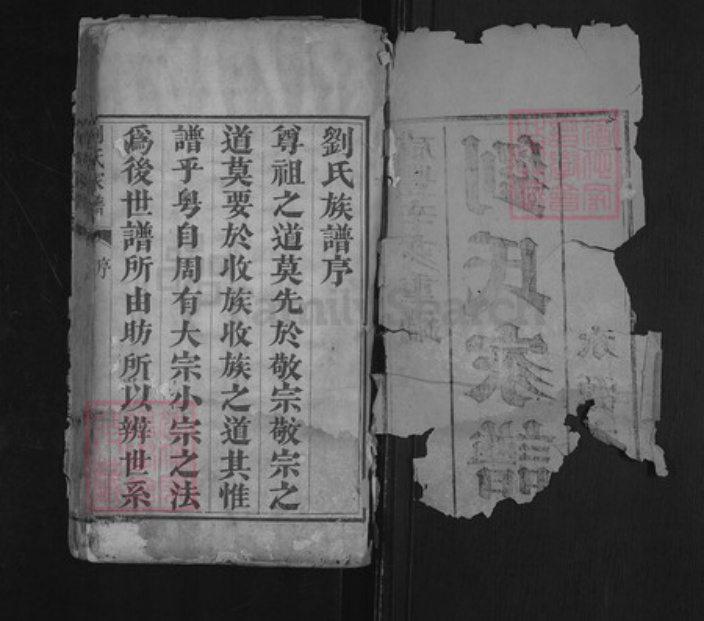 劉氏族譜序
尊祖之道莫先於敬宗敬宗之
道莫要於收族收族之道其惟
譜乎粤自周有大宗小宗之法
為後世譜所由昉所以辨世系
序
劉氏家譜
FamilySearch